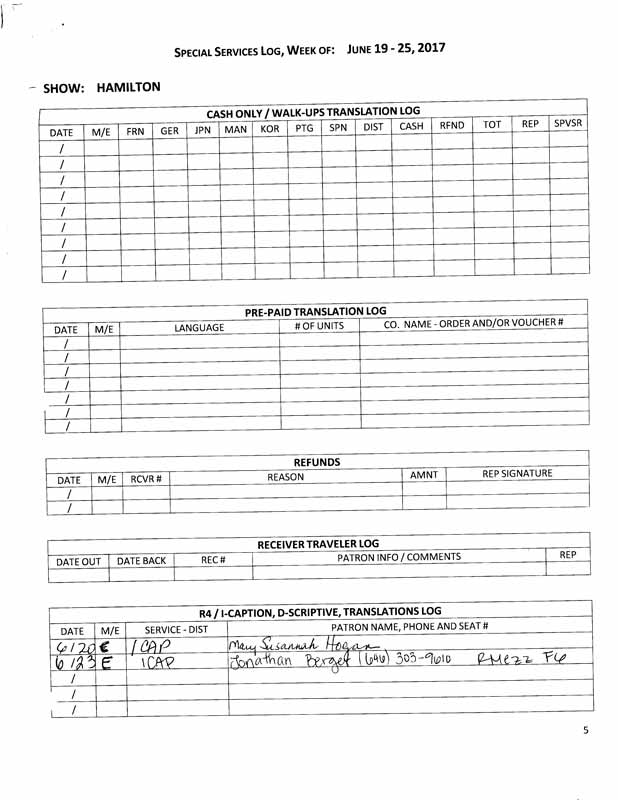 SPECIAL SERVICES LOG, WEEK OF: JUNE 19 - 25, 2017
SHOW: HAMILTON
CASH ONLY / WALK-UPS TRANSLATION LOG
DATE M/E FRN GER JPN MAN KOR PTG SPN DIST CASH RFND TOT REP SPVSR
/
/
/
/
/
/
/
/
/
PRE-PAID TRANSLATION LOG
DATE M/E LANGUAGE # OF UNITS CO. NAME - ORDER AND/OR VOUCHER #
/
/
/
/
/
/
/
REFUNDS
DATE M/E RCVR # REASON AMNT REP SIGNATURE
/
/
RECEIVER TRAVELER LOG
DATE OUT DATE BACK REC # PATRON INFO / COMMENTS REP
R4 / I-CAPTION, D-SCRIPTIVE, TRANSLATIONS LOG
DATE M/E SERVICE - DIST PATRON NAME, PHONE AND SEAT #
6/20 E ICAP Mary Susannah Hogan
6/23 E ICAP Jonathan Berget (646) 303-9610 RMezz F6
/
/
/
5